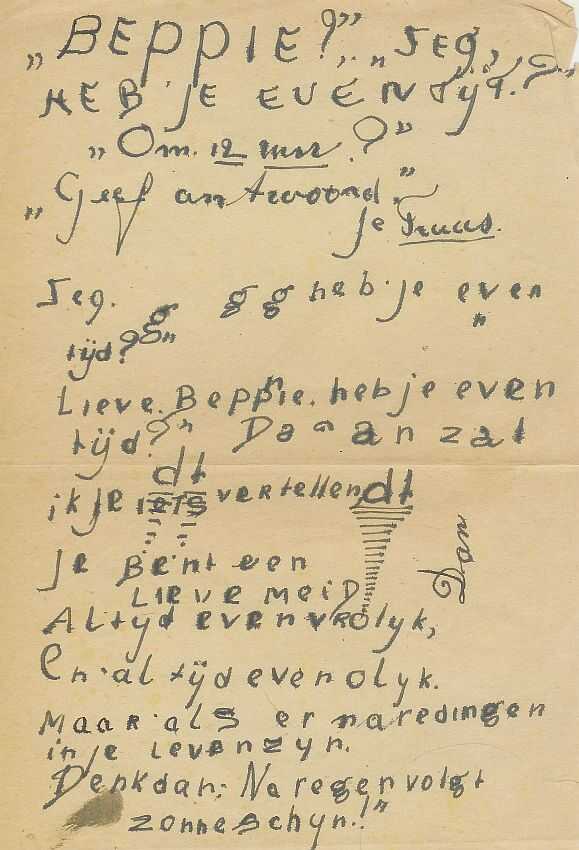 „BEPPIE?” „Seg,
HEB je EVEN tijd.?”
„Om. 12 uur.?”
„Geef antwoord.”
je Truus.
Seg. g g g heb je even
tijd?”
Lieve. Beppie. heb je even
tijd?” Da a an zat
dt
ik je iets vertellen, dt
Dan
je Bent een
LIEVE MEID
ALtyd even VROlyk,
En al tijd even olyk.
Maar als er naredingen
in je Leven zyn.
Denk dan; Na regen volgt
zonneschyn.!”